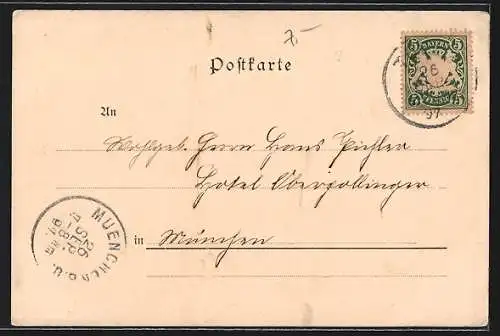 7.–
Postkarte
5 BAYERN 5
5 PFENNIG 5
26
97
An
Wohlgeb. Herrn Hans Pichler
Hotel Oberpollinger
in München
MUENCHEN
26
SEP.
97